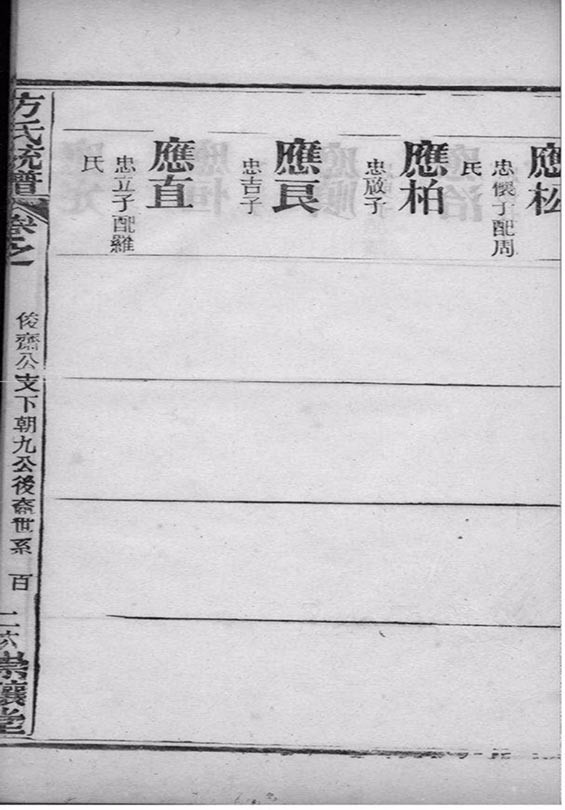 應松
忠懷子配周
氏
應柏
忠放子
應良
忠吉子
應直
忠立子配羅
氏
方氏統譜
卷之一
俊齋公支下朝九公後裔世系
百
二六
崇讓堂